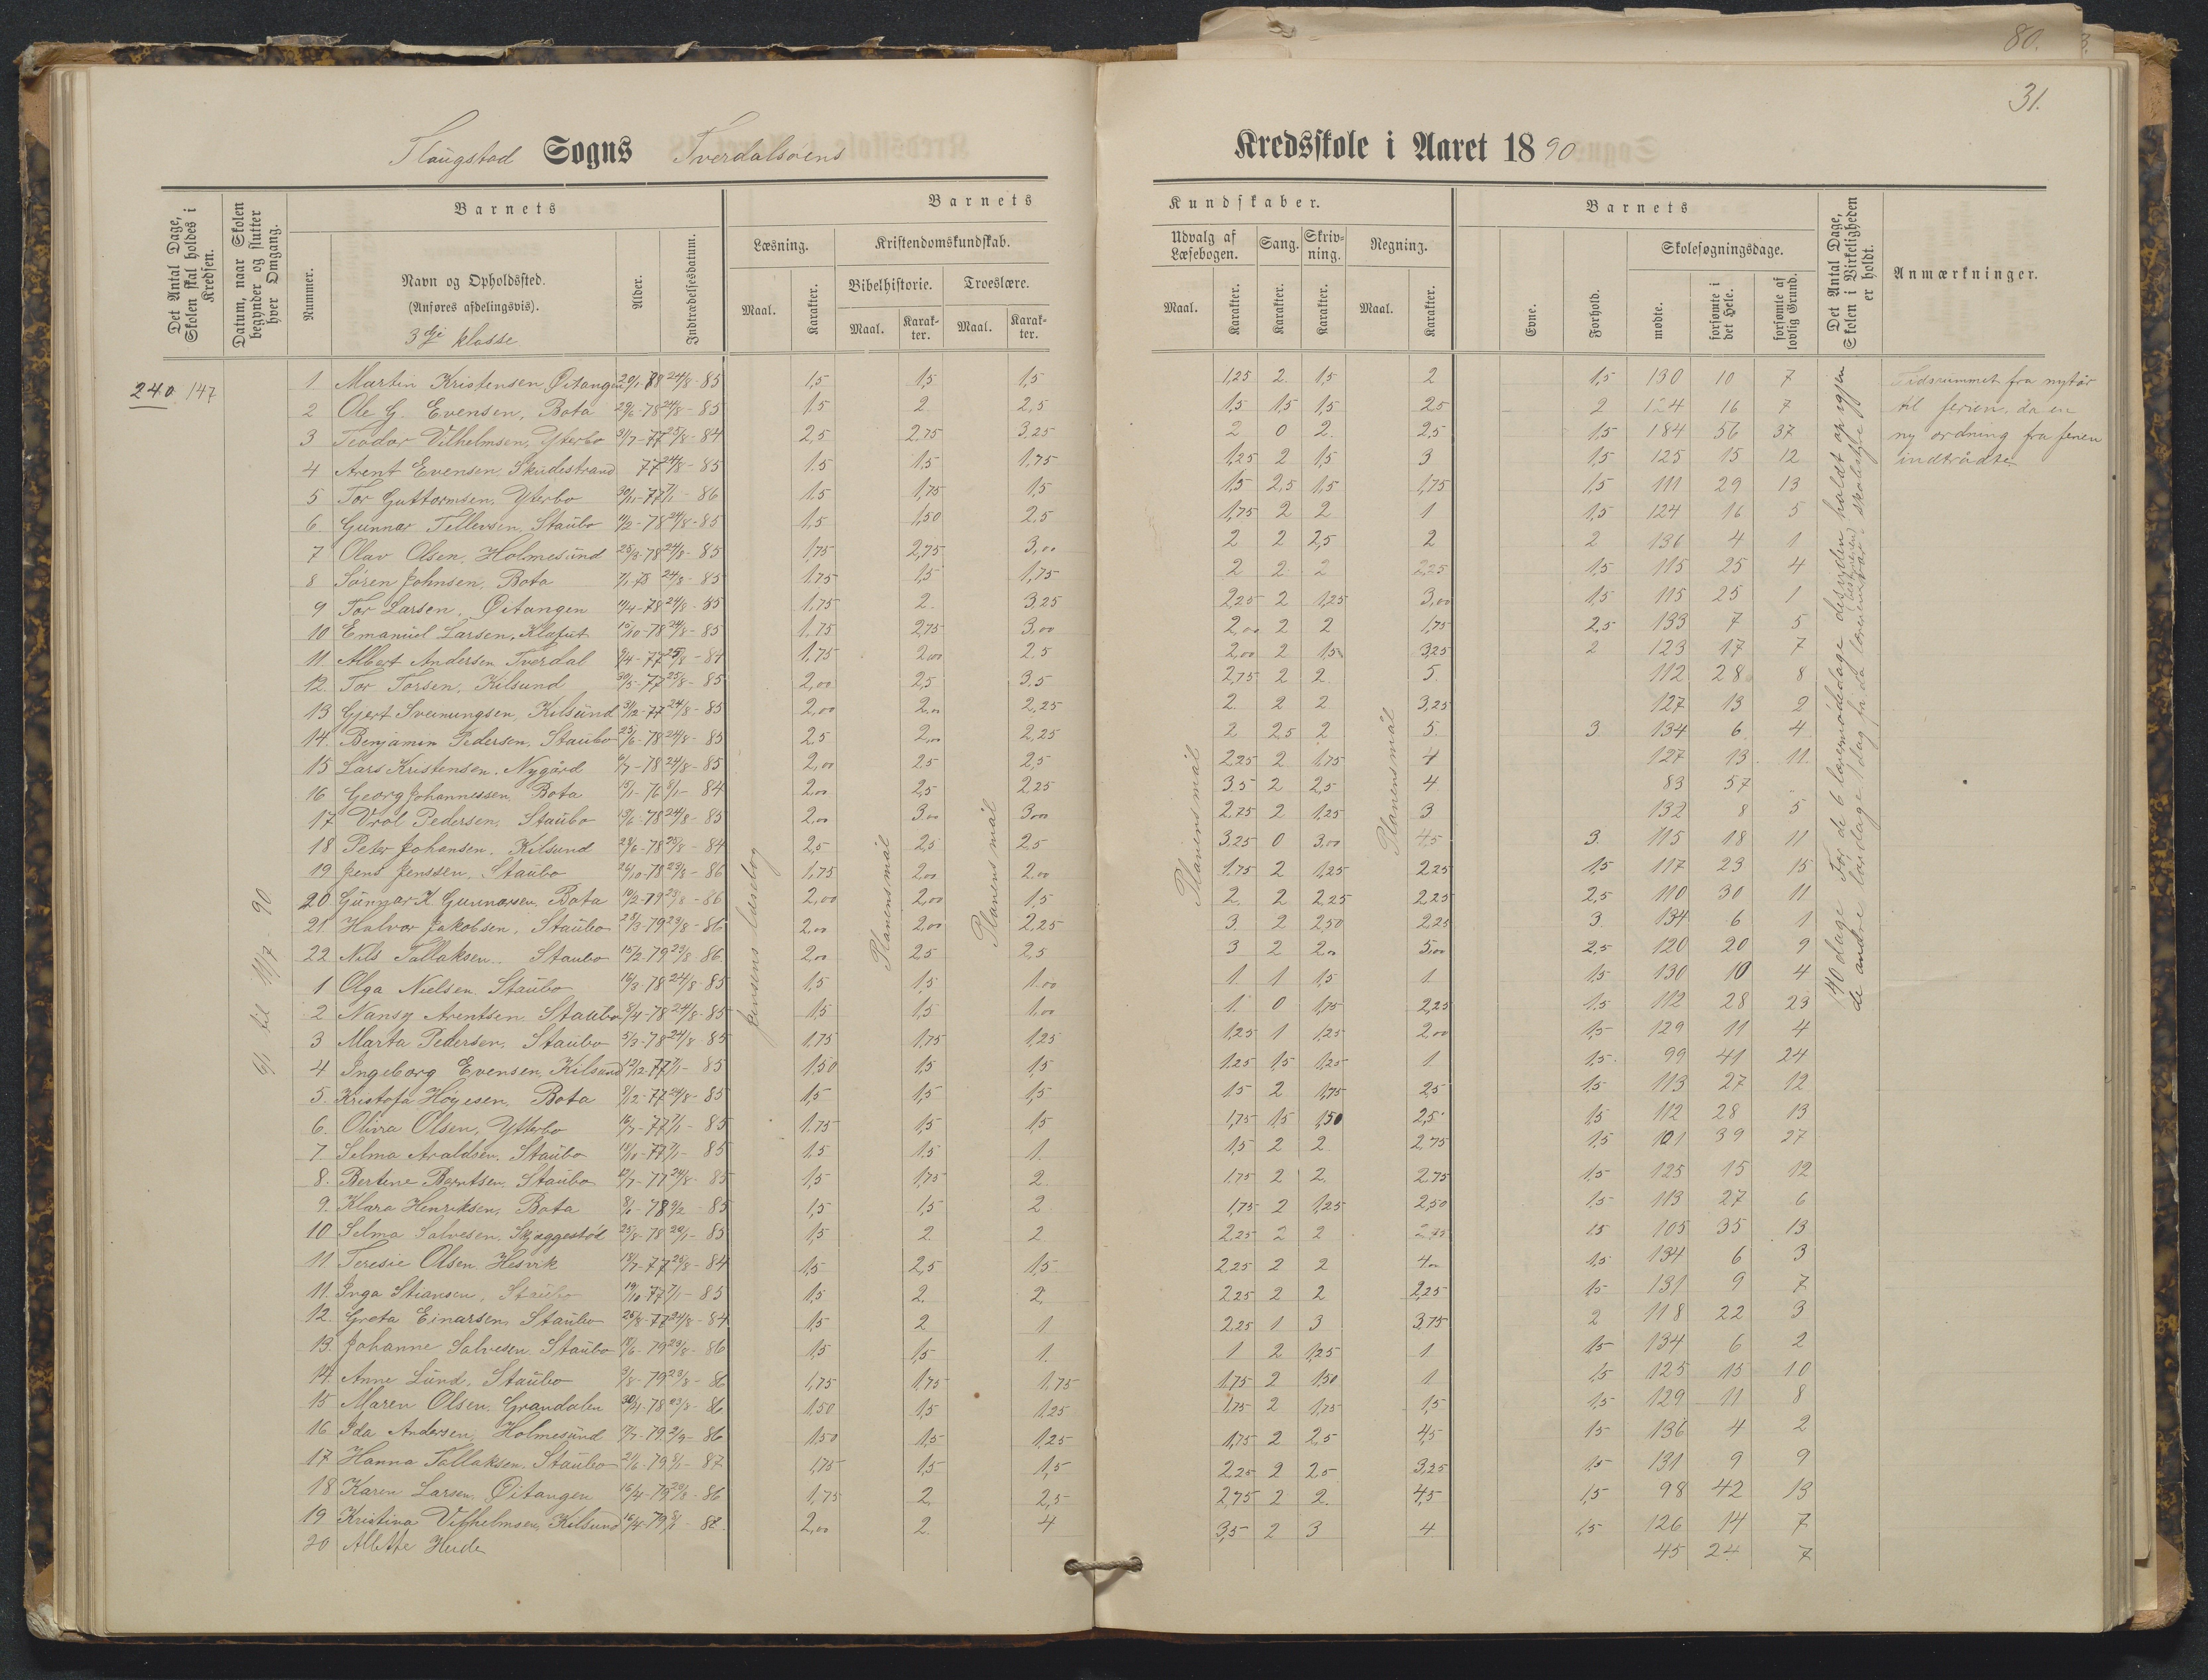 80.
31.
Flaugstad Sogns Tverdalsøens Kredsskole i Aaret 1890
Det Antal Dage, Skolen skal holdes i Kredsen.
Datum, naar Skolen begynder og slutter hver Omgang.
Barnets
Nummer.
Navn og Opholdssted.
(Anføres afdelingsvis).
3dje klasse
Alder.
Indtrædelsesdatum.
Barnets
Læsning.
Maal.
Karakter.
Kristendomskundskab.
Bibelhistorie.
Maal.
Karakter.
Troeslære.
Maal.
Karakter.
Kundskaber.
Udvalg af Læsebogen.
Maal.
Karakter.
Sang.
Karakter.
Skrivning.
Karakter.
Regning.
Maal.
Karakter.
Barnets
Evne.
Forhold.
Skolesøgningsdage.
mødte.
forsømte i det Hele.
forsømte af lovlig Grund.
Det Antal Dage, Skolen i Virkeligheden er holdt.
Anmærkninger.
240 147
9/1 til 11/7 - 90
Jensens læsebog
Planens mål
Planens mål
Planens mål
Planens mål
Tidsrummet fra nytår
til ferien, da en
ny ordning fra ferien
indtrådte
1 Martin Kristensen, Øitangen 24/8-85 1,5 1,5 1,5 1,25 2 1,5 2 1,5 130 10 7
2 Ole G. Evensen, Bota 29/6-78 24/8-85 1.5 2 2,5 1,5 1,5 1,5 2,5 2 124 16 7
3 Teodor Vilhelmsen, Yterbo 31/7-77 25/8-84 2,5 2,75 3,25 2 0 2 2,5 1,5 184 56 37
4 Arent Evensen Skudestrand 77 24/8-85 1.5 1,5 1,75 1,25 2 1,5 3 1,5 125 15 12
5 Tor Guttormsen, Yterbo 30/11-77 7/1-86 1.5 1,75 1,5 1,5 2,5 1,5 1,75 1,5 111 29 13
6 Gunnar Tellevsen, Staubo 24/8-85 1,5 1,50 2,5 1,75 2 2 1 1,5 124 16 5
7 Olav Olsen, Holmesund 25/8-78 24/8-85 1,75 2,75 3,00 2 2 2,5 2 2 136 4 1
8 Søren Johnsen, Bota 24/8-85 1.75 1,5 1,75 2 2 2 2,25 1,5 115 25 4
9 Tor Larsen, Øitangen 24/8-85 1,75 2 3,25 2,25 2 1,25 3,00 1,5 115 25 1
10 Emanuel Larsen, Klafut 15/10-78 24/8-85 1,75 2,75 3,00 2,00 2 2 1,75 2,5 133 7 5
11 Albert Andersen Tverdal 25/8-84 1,75 2,00 2.5 2,00 2 1,5 3,25 2 123 17 7
12 Tor Torsen, Kilsund 30/5-77 25/8-85 2,00 2,5 3,5 2,75 2 2 5 112 28 8
13 Gjert Sveinungsen, Kilsund 3/12-77 24/8-85 2,00 2,00 2,25 2 2 2 3,25 127 13 2
14. Benjamin Pedersen, Staubo 25/6-78 24/8-85 2,5 2,00 2,25 2 2,5 2 5 3 134 6 4
15 Lars Kristensen, Nygård 24/8-85 2,00 2,5 2,5 2,25 2 1,75 4 127 13 11
16 Georg Johannessen, Bota 84 2,00 2,5 2,25 3,5 2 2,5 4 83 57
17 Vrål Pedersen, Staubo 24/8-85 2,00 3,00 3,00 2,75 2 1,25 3 132 8 5
18 Peter Johansen, Kilsund 25/8-84 2,5 2,5 2,5 3,25 0 3,00 4,5 3 115 18 11
19 Jens Jenssen, Staubo 23/8-86 1,75 2,00 2,00 1,75 2 1,25 2,25 1,5 117 23 15
20 Gunnar K Gunnarsen, Bota 10/2-79 23/8-86 2,00 2,00 1,5 2 2 2,25 2,25 2,5 110 30 11
21 Halvor Jakobsen, Staubo 28/3-79 23/8-86 2,00 2,00 2,25 3 2 2,50 2,25 3 134 6 1
22 Nils Tallaksen, Staubo 15/2-79 23/8-86 2,00 2,5 2,5 3 2 2,00 5,00 2,5 120 20 9
1 Olga Nielsen, Staubo 16/3-78 24/8-85 1,5 1,5 1,00 1 1 1,5 1 1,5 130 10 4
2 Nansy Arentsen, Staubo 24/8-85 1,5 1,5 1,00 1 0 1,75 2,25 1,5 112 28 23
3 Marta Pedersen, Staubo 5/3-78 24/8-85 1,75 1,75 1,25 1,25 1 1,25 2,00 1,5 129 11 4
4 Ingeborg Evensen, Kilsund 12/12-77 7/1-85 1,50 1,5 1,5 1,25 1,5 1,25 1 1,5 99 41 24
5. Kristofa Høyesen, Bota 24/8-85 1,5 1,5 1,5 1,5 2 1,75 2,5 1,5 113 27 12
6. Olivia Olsen, Ytterbo 7/1-85 1.75 1,5 1,5 1,75 1,5 1,50 2,5 1,5 112 28 13
7. Selma Araldsen, Staubo 7/1-85 1.5 1.5 1. 1,5 2 2 2,75 1,5 101 39 27
8. Bertine Berntsen, Staubo 24/8-85 1,5 1,75 2. 1,75 2 2 2,75 1,5 125 15 12
9. Klara Henriksen, Bota 85 1,5 1,5 2 1,75 2 1,25 2,50 1,5 113 27 6
10 Selma Salvesen, Skjæggestød 85 1,5 2 2 2,25 2 2 2,75 1,5 105 35 13
11 Teresie Olsen, Hesvik 25/8-84 1,5 2,5 1,5 2,25 2 2 4,00 1,5 134 6 3
11. Inga Stiansen, Staubo 19/10-77 7/1-85 1,5 2. 2. 2,25 2 2 2,25 1,5 131 9 7
12. Greta Einarsen, Staubo 24/8-84 1,5 2 1 2,25 1 3 3,75 2 118 22 3
13. Johanne Salvesen, Staubo 23/8-86 1,5 1,5 1. 1 2 1,25 1 1,5 134 6 2
14. Anne Lund, Staubo 23/8-86 1,75 1,75 1,75 1,75 2 1,50 1 1,5 125 15 10
15 Maren Olsen, Grandalen 30/4-78 23/8-86 1,50 1,5 1,25 1,75 2 1,75 1,5 1,5 129 11 8
16 Ida Andersen, Holmesund 86 1,50 1,5 1,25 1,75 2 2,5 4,5 1,5 136 4 2
17 Hanna Tallaksen, Staubo 87 1,75 1,5 1,5 2,25 2 2,5 3,25 1,5 131 9 9
18 Karen Larsen, Øitangen 16/4-79 23/8-86 1,75 2. 2,5 2,75 2 2. 4,5 1,5 98 42 13
19 Kristina Vilhelmsen, Kilsund 2,00 2. 4 3,5 2 3 4 1,5 126 14 7
20 Alette Herde 45 24 7
140 dage. For de 6 lørermødedage desuden holdt op igjen
de andre lørdage